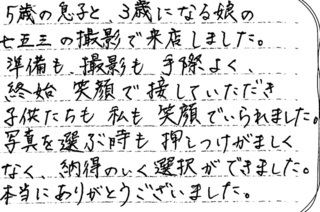 5歳の息子と、3歳になる娘の
七五三の撮影で来店しました。
準備も、撮影も手際よく、
終始笑顔で接していただき
子供たちも私も笑顔でいられました。
写真を選ぶ時も押しつけがましく
なく、納得のいく選択ができました。
本当にありがとうございました。